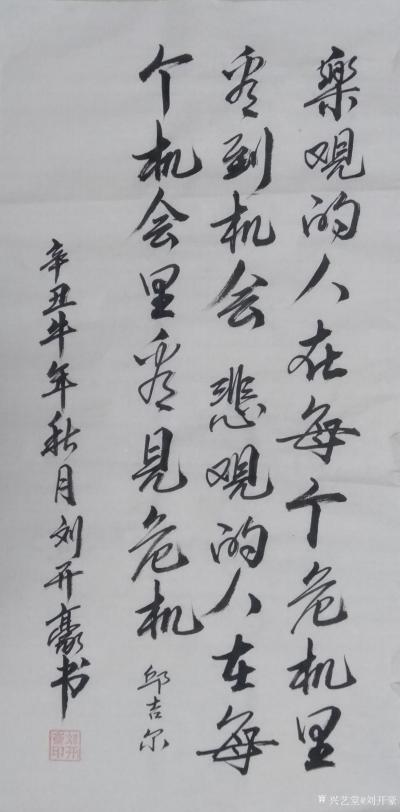 樂观的人在每个危机里
看到机会 悲观的人在每
个机会里看见危机
邱吉尔
辛丑牛年秋月刘开豪书
刘开豪印
兴艺堂@刘开豪